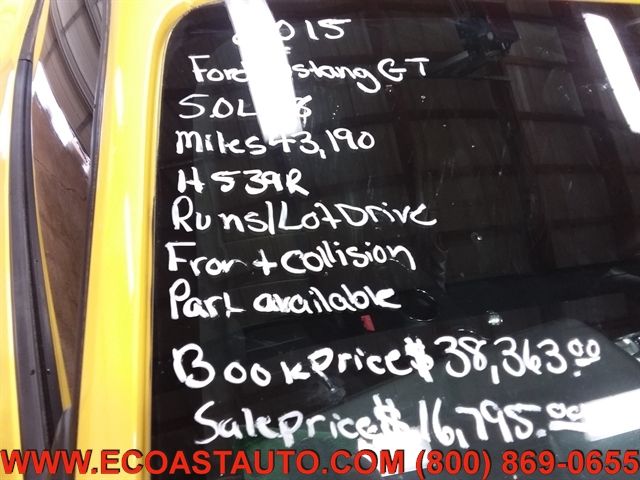 2015
Ford Mustang GT
5.0L V8
Miles 43,190
H539R
Runs/Lot Drive
Front collision
Part available
Book Price $38,363.00
Sale price $16,795.00
WWW.ECOASTAUTO.COM (800) 869-0655